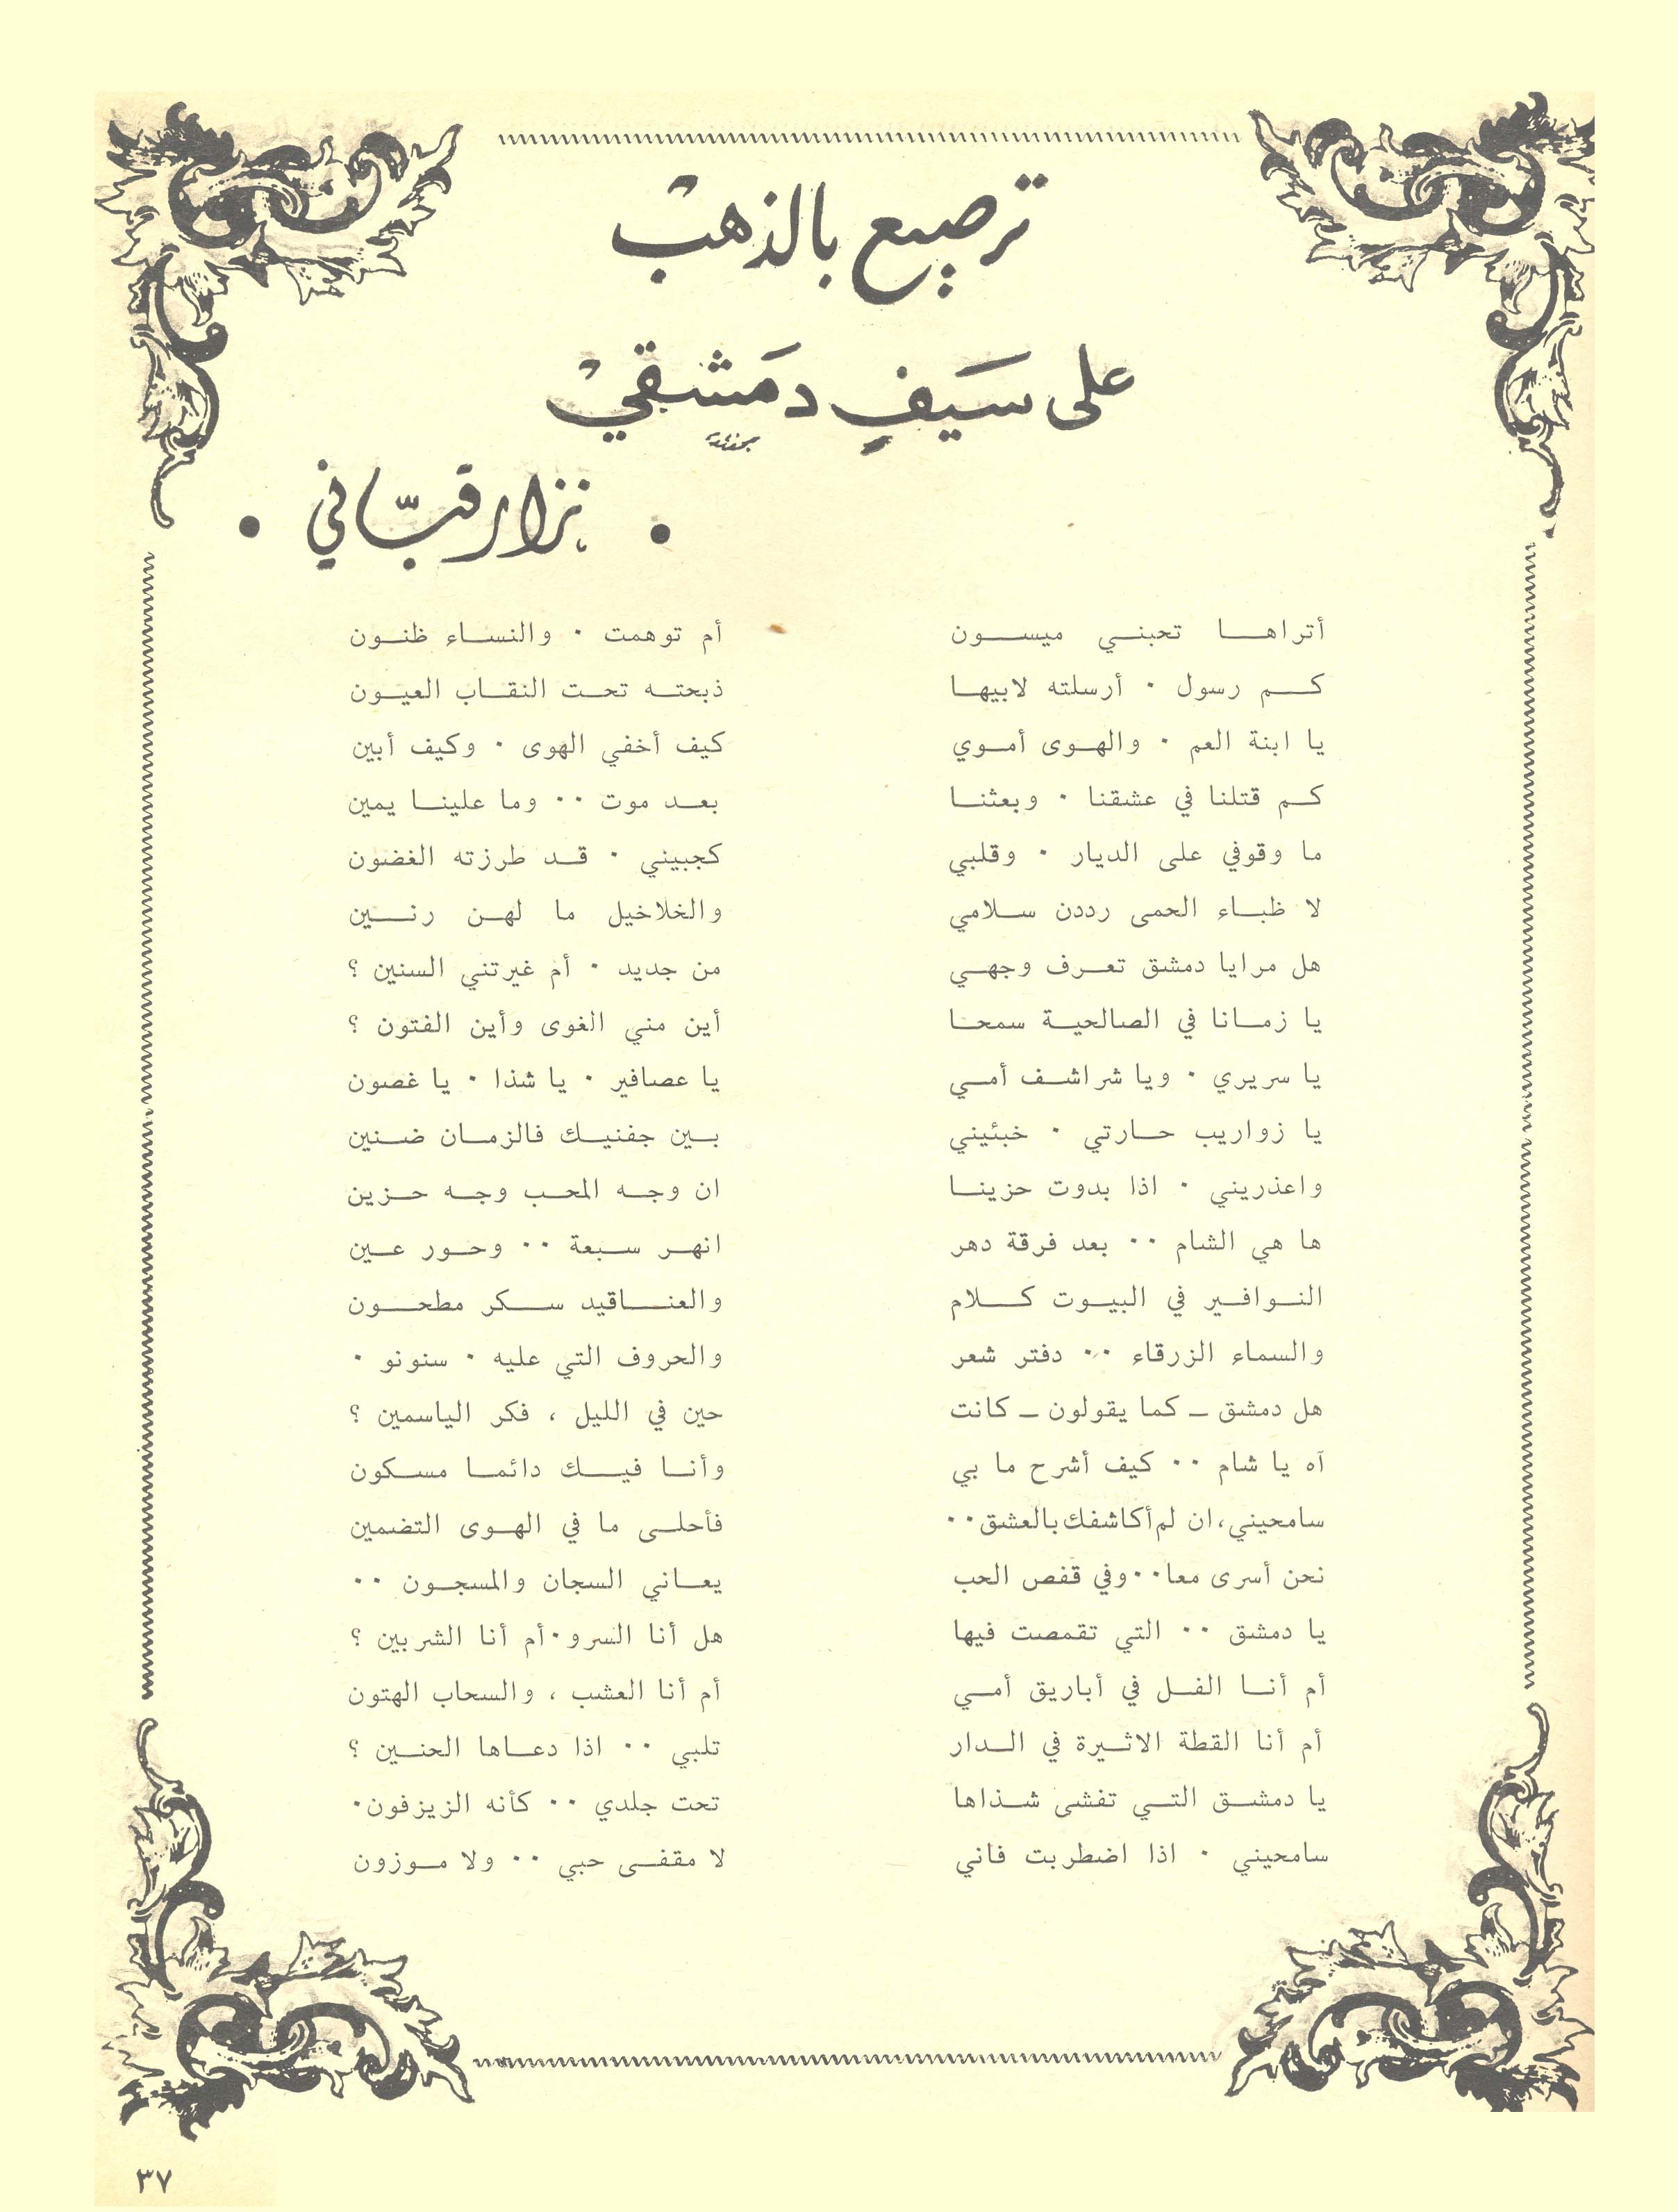 ترصيع بالذهب
على سَيفٍ دمَشقيْ
• نزار قبّاني •
أتراها تحبني ميسون أم توهمت . والنساء ظنون
كم رسول . أرسلته لابيها ذبحته تحت النقاب العيون
يا ابنة العم . والهوى أموي كيف أخفي الهوى . وكيف أبين
كم قتلنا في عشقنا . وبعثنا بعد موت .. وما علينا يمين
ما وقوفي على الديار . وقلبي كجبيني . قد طرزته الغضون
لا ظباء الحمى رددن سلامي والخلاخيل ما لهن رنين
هل مرايا دمشق تعرف وجهي من جديد . أم غيرتني السنين ؟
يا زمانا في الصالحية سمحا أين مني الغوى وأين الفتون ؟
يا سريري . ويا شراشف أمي يا عصافير . يا شذا . يا غصون
يا زواريب حارتي . خبئيني بين جفنيك فالزمان ضنين
واعذريني . اذا بدوت حزينا ان وجه المحب وجه حزين
ها هي الشام .. بعد فرقة دهر انهر سبعة .. وحور عين
النوافير في البيوت كلام والعناقيد سكر مطحون
والسماء الزرقاء .. دفتر شعر والحروف التي عليه . سنونو .
هل دمشق ـ كما يقولون ـ كانت حين في الليل ، فكر الياسمين ؟
آه يا شام .. كيف أشرح ما بي وأنا فيك دائما مسكون
سامحيني، ان لم أكاشفك بالعشق.. فأحلى ما في الهوى التضمين
نحن أسرى معا.. وفي قفص الحب يعاني السجان والمسجون ..
يا دمشق .. التي تقمصت فيها هل أنا السرو . أم أنا الشربين ؟
أم أنا الفل في أباريق أمي أم أنا العشب ، والسحاب الهتون
أم أنا القطة الاثيرة في الدار تلبي .. اذا دعاها الحنين ؟
يا دمشق التي تفشى شذاها تحت جلدي .. كأنه الزيزفون.
سامحيني . اذا اضطربت فاني لا مقفى حبي .. ولا موزون
٣٧